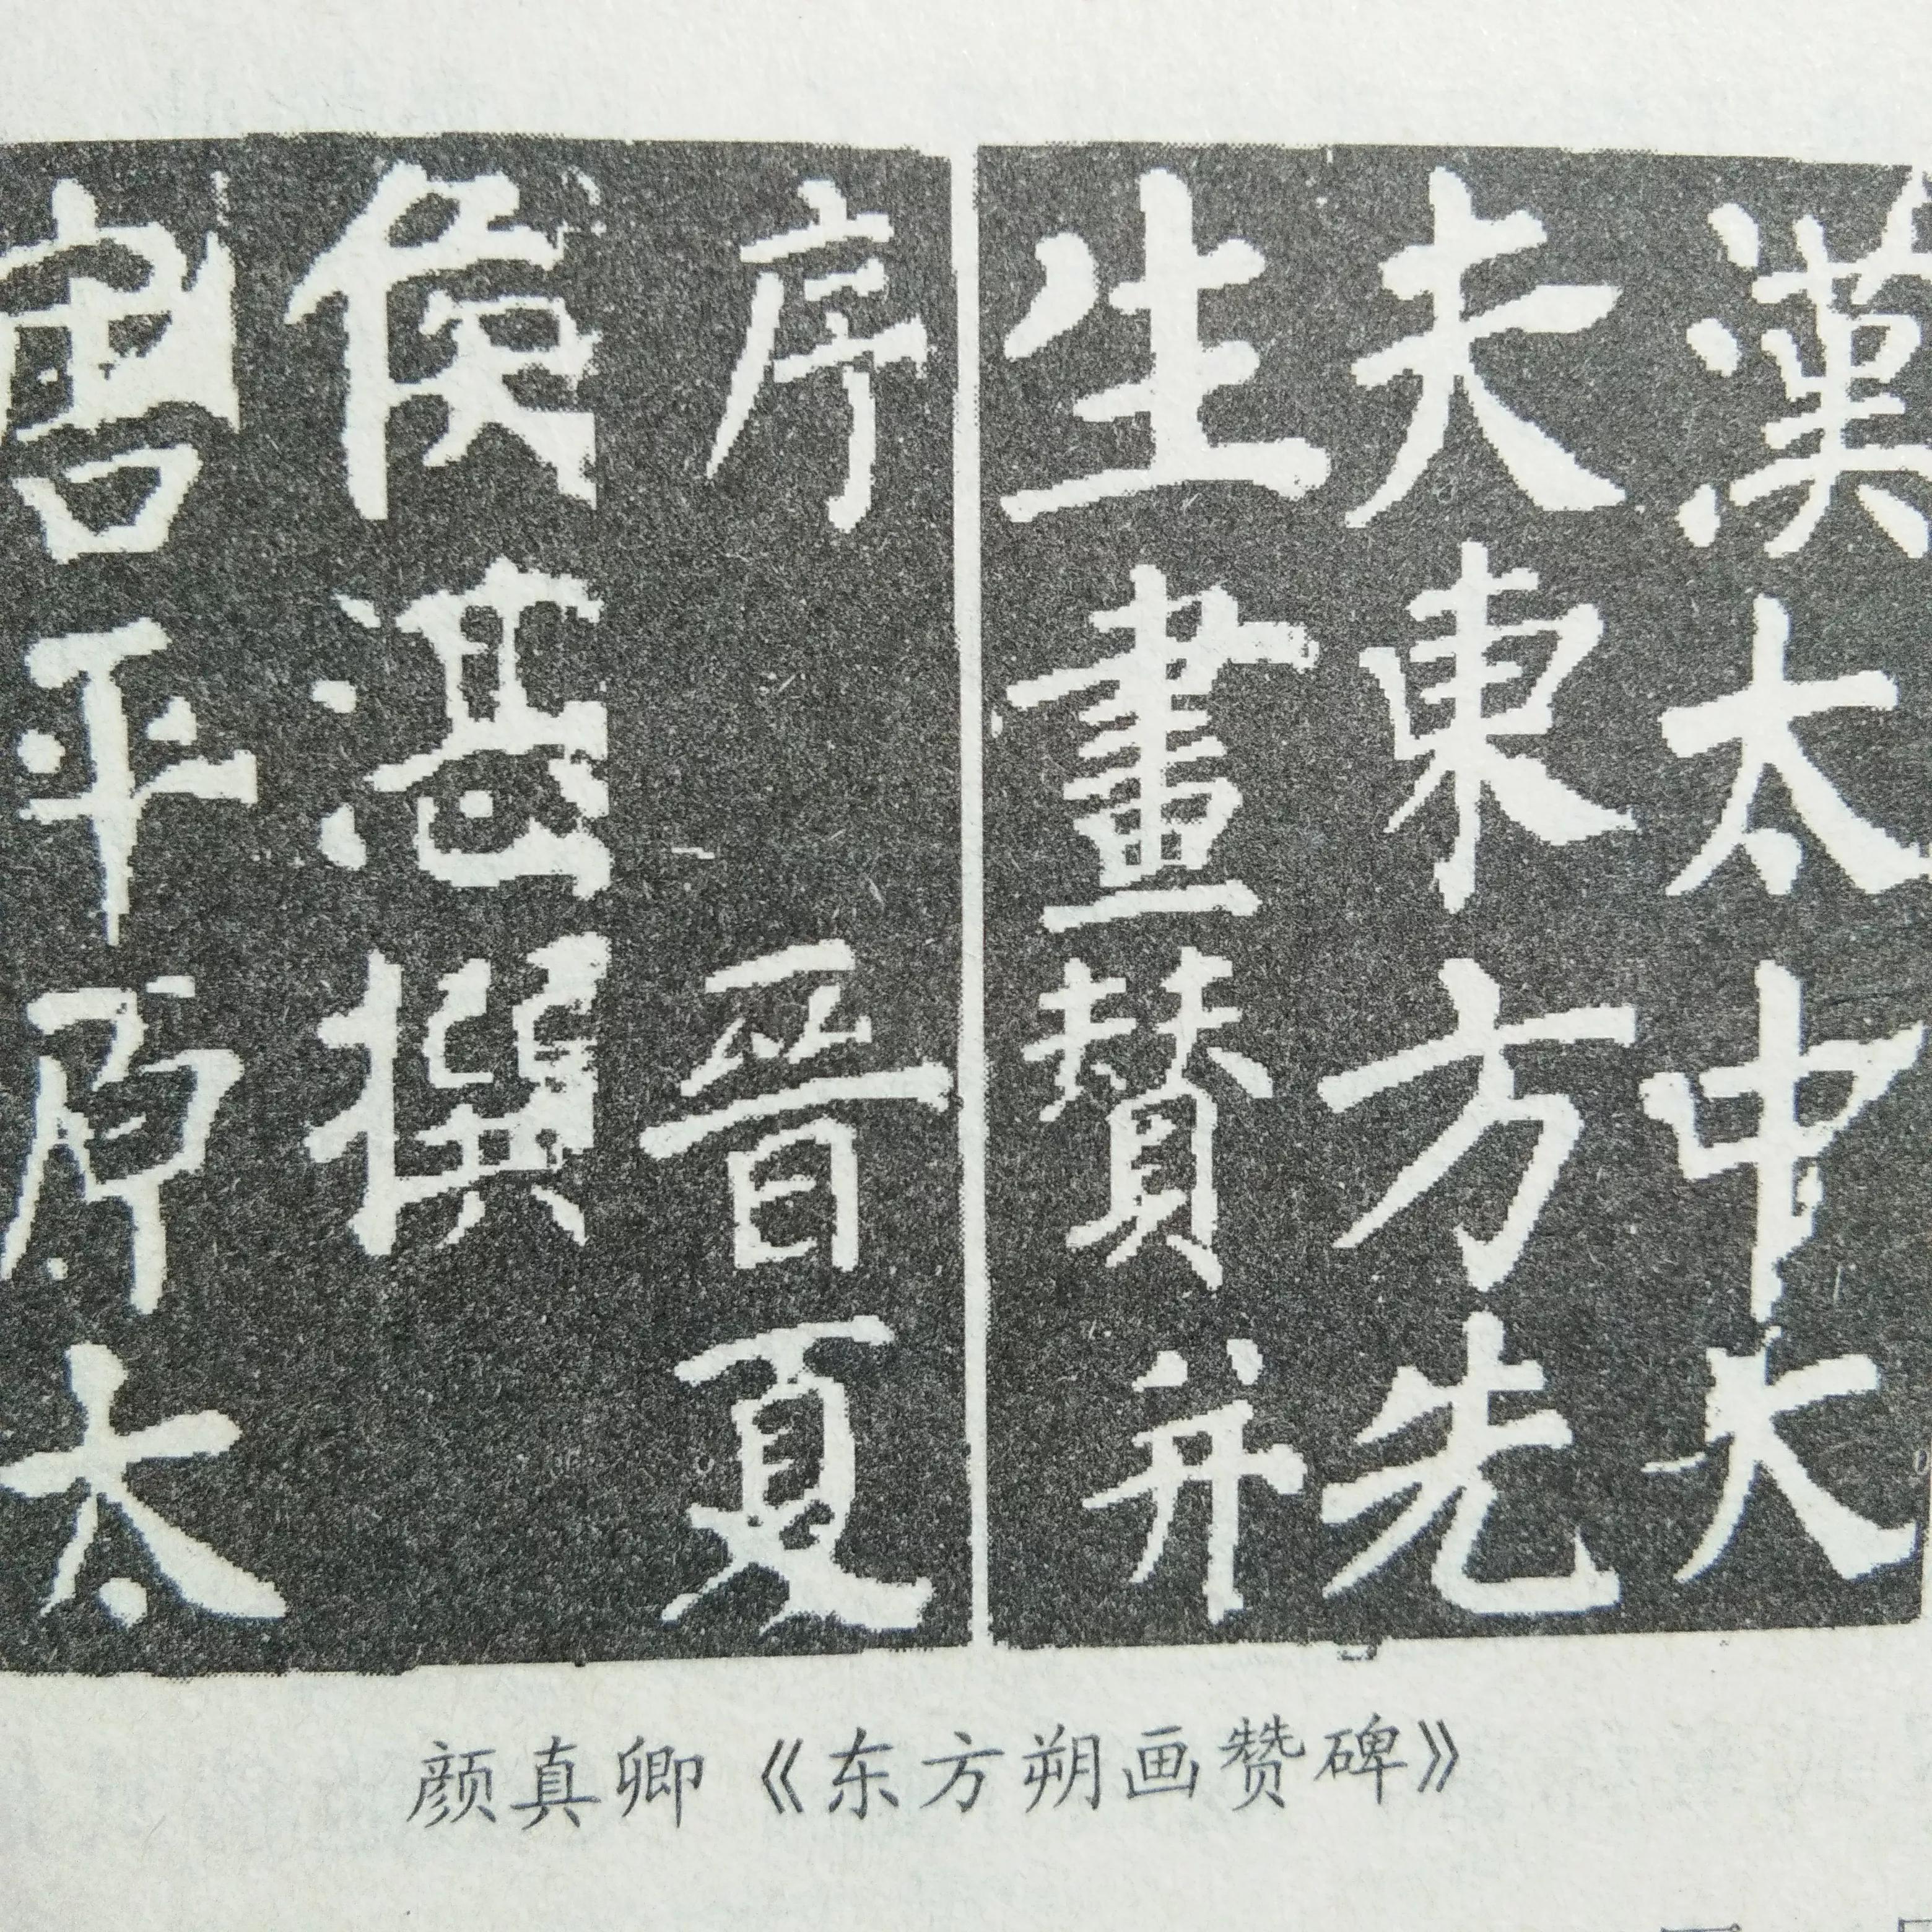 漢太中大
夫東方先
生畫賛并
序 晉夏
侯湛撰
唐平原太
颜真卿《东方朔画赞碑》